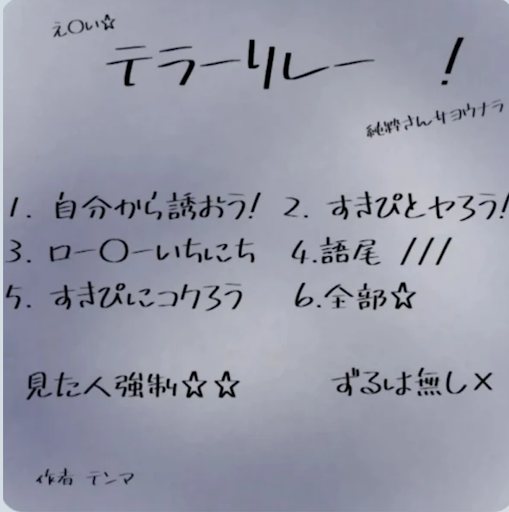 え〇い☆
テラーリレー !
純粋さんサヨウナラ
1. 自分から誘おう! 2. すきぴとヤろう!
3. ロー〇ーいちにち 4.語尾 ///
5. すきぴにコクろう 6.全部☆
見た人強制☆☆ ずるは無し×
作者 テンマ